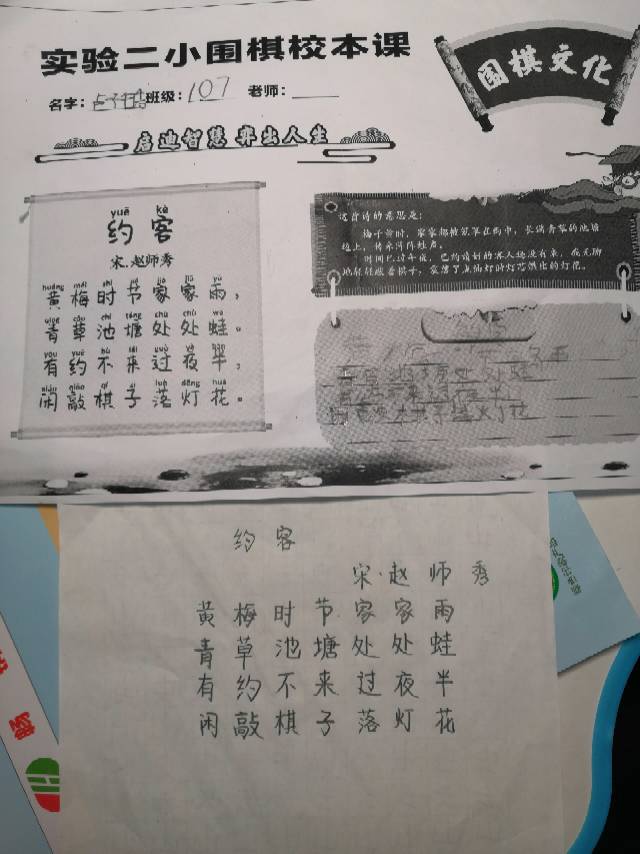 实验二小围棋校本课
围棋文化
名字： 班级：107 老师：
启迪智慧 弈出人生
yuē kè
约客
宋.赵师秀
huáng méi shí jié jiā jiā yǔ
黄梅时节家家雨，
qīng cǎo chí táng chù chù wā
青草池塘处处蛙。
yǒu yuē bù lái guò yè bàn
有约不来过夜半，
xián qiāo qí zǐ luò dēng huā
闲敲棋子落灯花。
这首诗的意思是：
梅子黄时，家家都被笼罩在雨中，长满青草的池塘
边上，传来阵阵蛙声。
时间已过午夜，已约请好的客人还没有来，我无聊
地轻轻敲着棋子，震落了点油灯时灯芯燃化的灯花。
约客
宋·赵师秀
黄梅时节家家雨
青草池塘处处蛙
有约不来过夜半
闲敲棋子落灯花